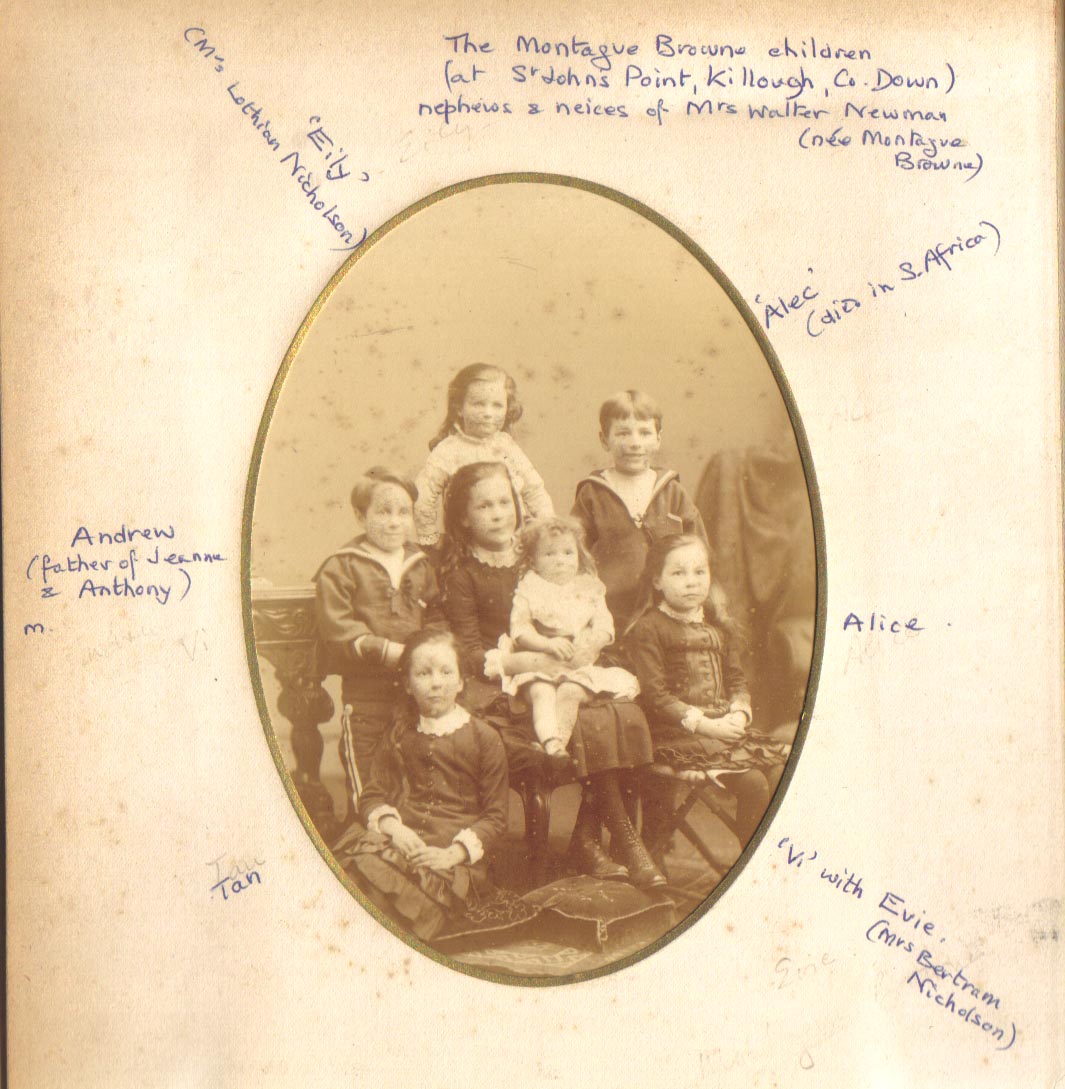 The Montague Browne children
(at St Johns Point, Killough, Co. Down)
nephews & neices of Mrs Walter Newman
(née Montague
Browne)
'Eily'
(Mrs Lothian Nicholson)
'Alec'
(died in S. Africa)
Andrew
(father of Jeanne
& Anthony)
m.
Vi
Alice.
Alice
Tan
Tan
'Vi' with Evie.
(Mrs Bertram
Nicholson)
Evie